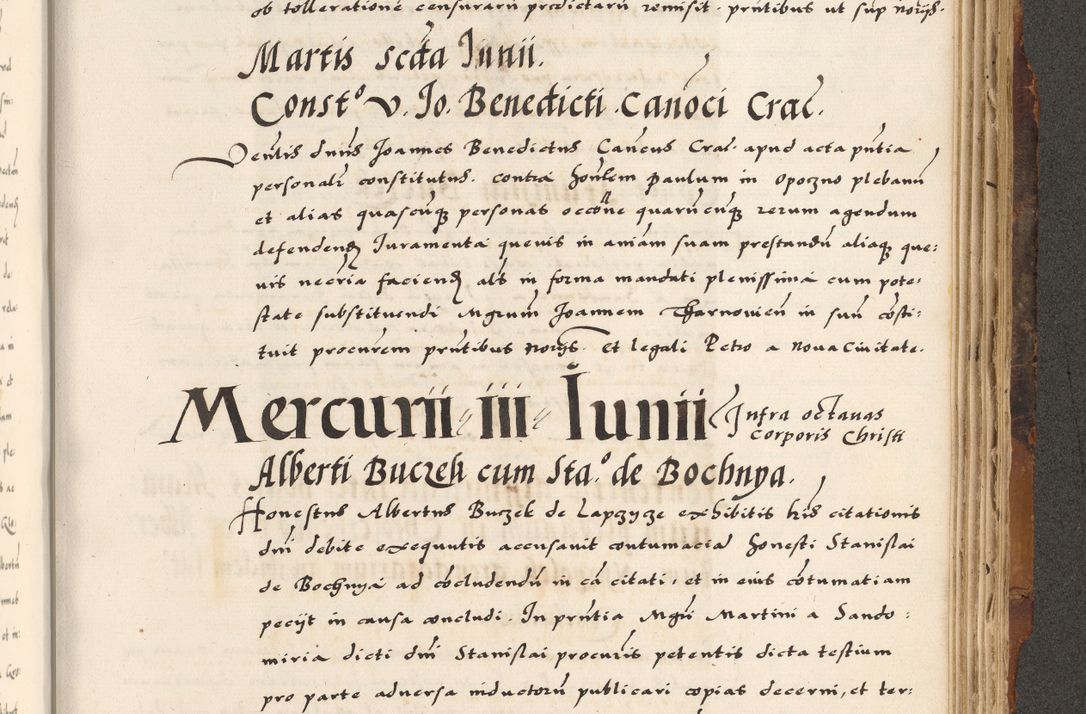 ob tolleratione censurarū predictarū remisit. pñtibus ut sup noñs.
Martis scđa Iunii.
Constº v. Io. Benedicti Canōci Crac̄.
Venl̄is dnus Joannes Benedictus Canc̄us Crac̄ apud acta pñtia
personalr̄ constitutus. contra honl̄em Paulum in Opoczno plebanū
et alias quascūq̨ personas occōne quarūcūq̨ rerum agendum
defendenđ Iuramenta quevis in aniām suam prestandū aliaq̨ que:
vis nēcria faciendđ als̄ in forma mandati plenissima cum pote:
state substituendi Mgrum Joannem Tharnovień in suū cōsti:
tuit procurem pñtibus noñs. Et legali Petro a Nova Civitate.
Mercurii iii Iunii Infra octavas
Corporis Christi
Alberti Buczek cum Sta.º de Bochnya.
Honestus Albertus Buczek de Lapczycze exhibitis lr̄is citationis
dnī debite exequutis accusavit contumaciā honesti Stanislai
de Bochnya ad cōcludendū in cā citati, et in eius cōtumatiam
peciit in causa concludi. In pñtia Mgrī Martini a Sando:
miria dicti dnī Stanislai procuris petentis dicta testium
pro parte adversa inductorū publicari copias decerni, et ter: